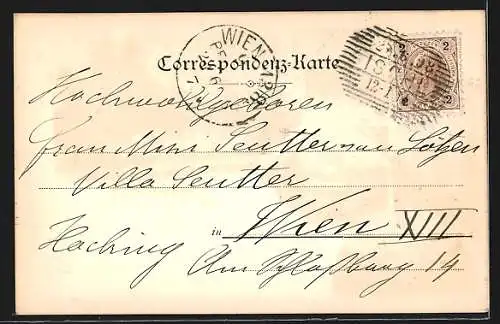 WIEN
Correspondenz-Karte
2 2
2 2
Hochwohlgeboren
Frau Mizi Seutter von Lötzen
Villa Seutter
in Wien XIII
Hacking Am Schloßberg 14